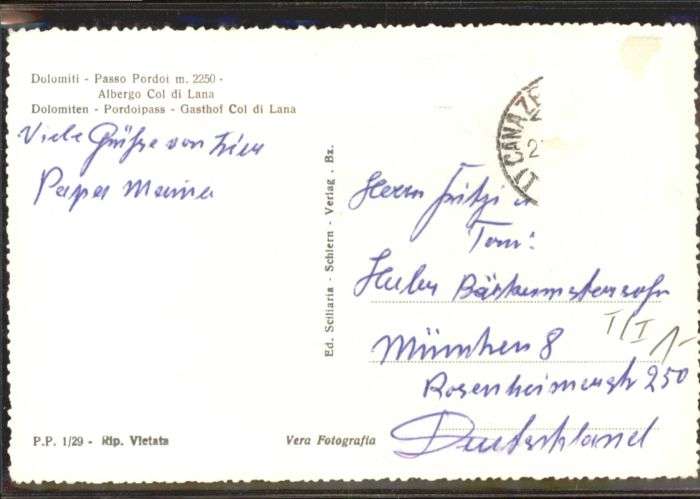 Dolomiti - Passo Pordoi m. 2250 -
Albergo Col di Lana
Dolomiten - Pordoipass - Gasthof Col di Lana
Viele Grüße von hier
Papa Mama
CANAZE
Ed. Sciliaria - Schlern - Verlag . Bz.
Herrn Fritzi u
Toni:
Huber Bäckermeistersohn
I/I 1-
München 8
Rosenheimerstr 250
Deutschland
P.P. 1/29 - Rip. Vietata
Vera Fotografia